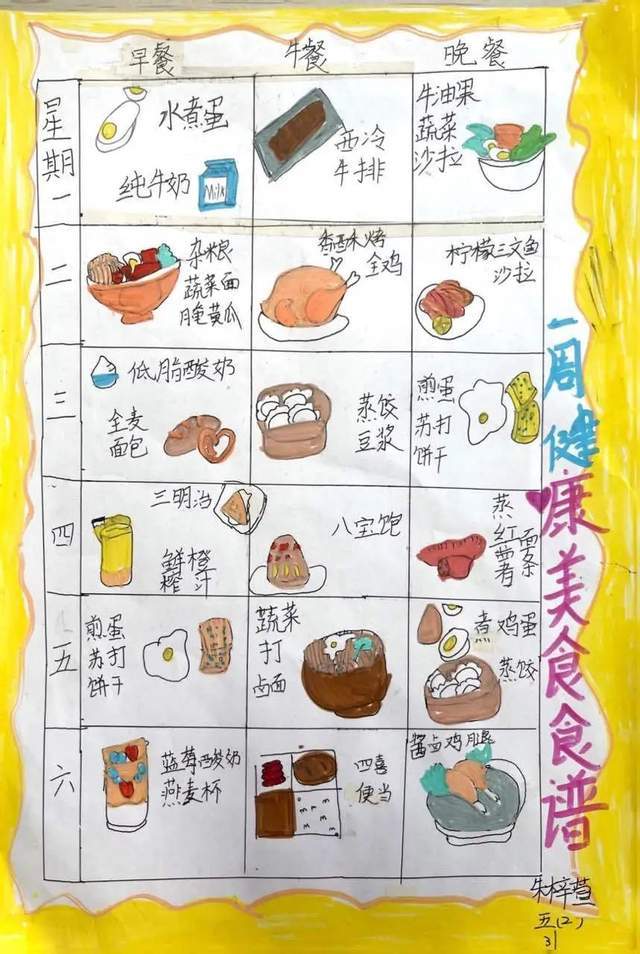 早餐 牛餐 晚餐
星期一
水煮蛋
纯牛奶
Milk
西冷
牛排
牛油果
蔬菜
沙拉
二
杂粮
蔬菜面
腌黄瓜
香酥烤
全鸡
柠檬三文鱼
沙拉
三
低脂酸奶
全麦
面包
蒸饺
豆浆
煎蛋
苏打
饼干
四
三明治
鲜橙
榨汁
八宝饱
蒸
红面
薯条
五
煎蛋
苏打
饼干
蔬菜
打
卤面
煮鸡蛋
蒸饺
六
蓝莓酸奶
燕麦杯
四喜
便当
酱卤鸡腿
一周健康美食食谱
朱梓萱
五(2)
31